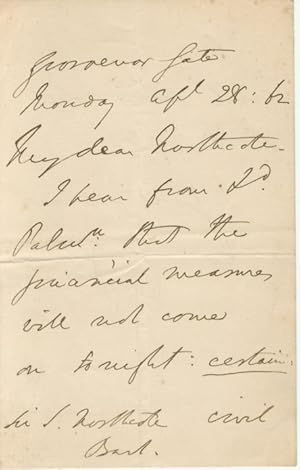 Grosvenor Gate
Monday Apl 28: 62
My dear Northcote.
I hear from Ld.
Palmn. that the
financial measures
will not come
on to night: certain.
Sir S. Northcote civil
Bart.